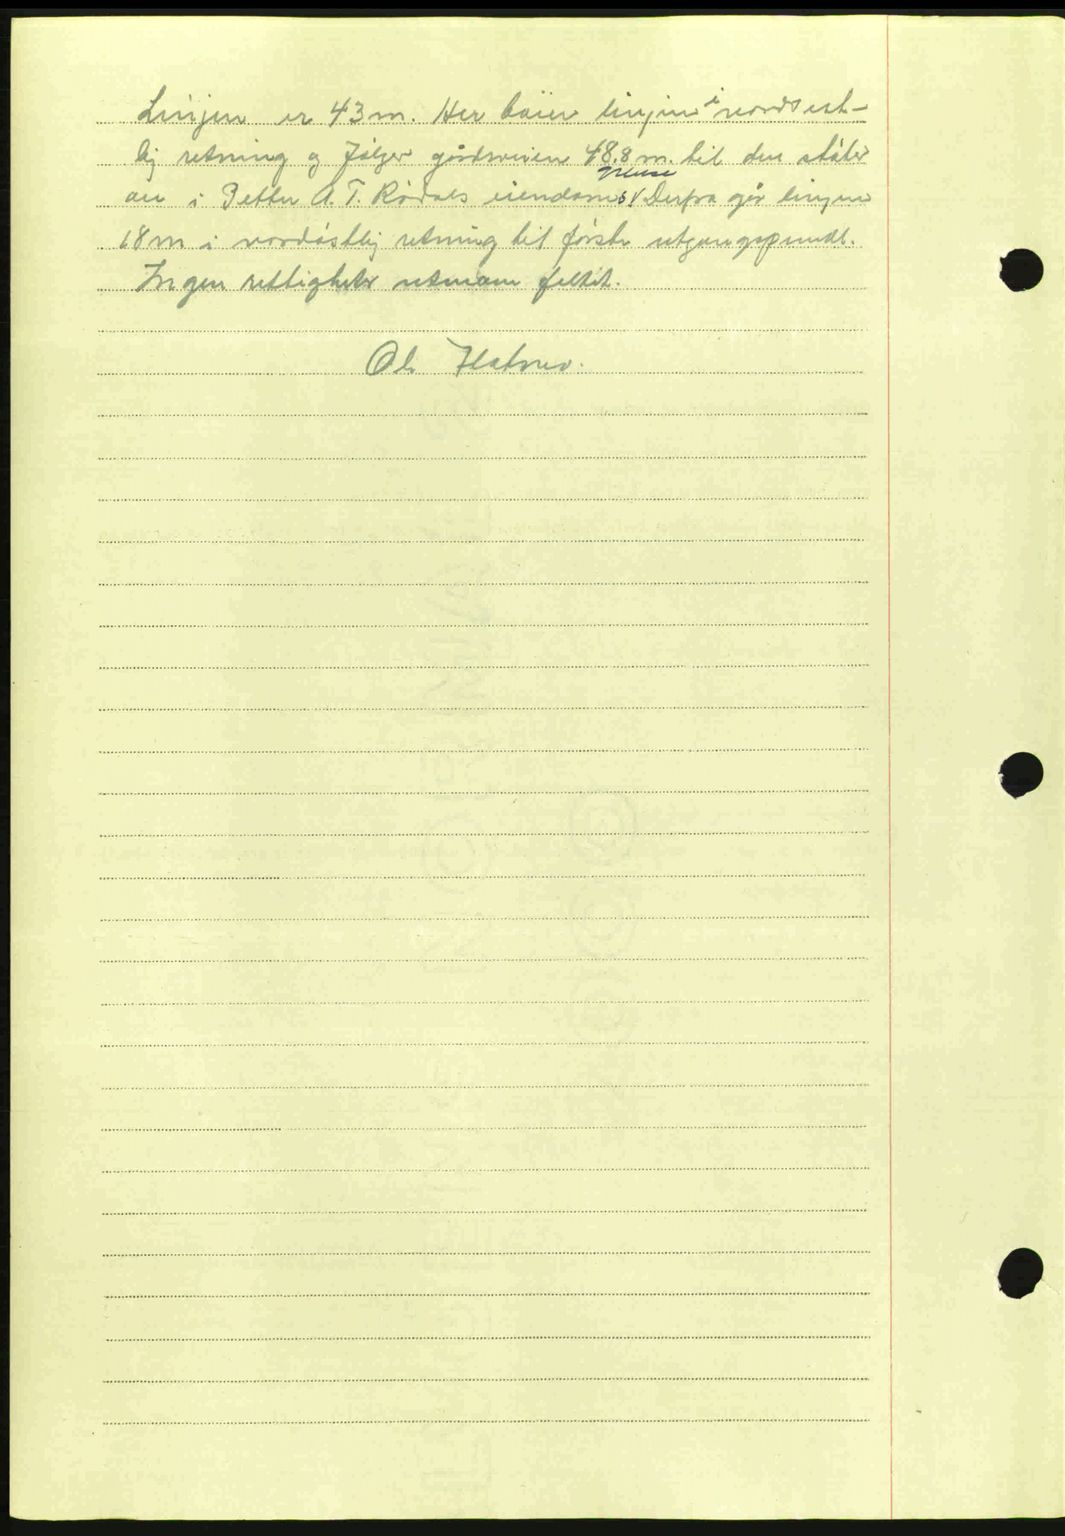 Linjen er 43 m. Her bøier linjen i nordvest-
lig retning og følger gårdsveien 48.8 m. til den støter
an i Petter A. T. Rødals eiendoms grense Derfra går linjen
18 m i nordøstlig retning til første utgangspunkt.
Ingen rettigheter utenom feltet.
Ole